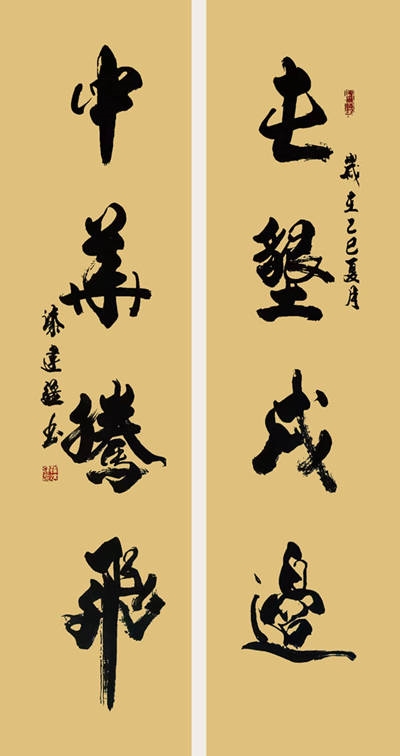 屯墾戍邊
歲在乙巳夏月
中華騰飛
建疆書